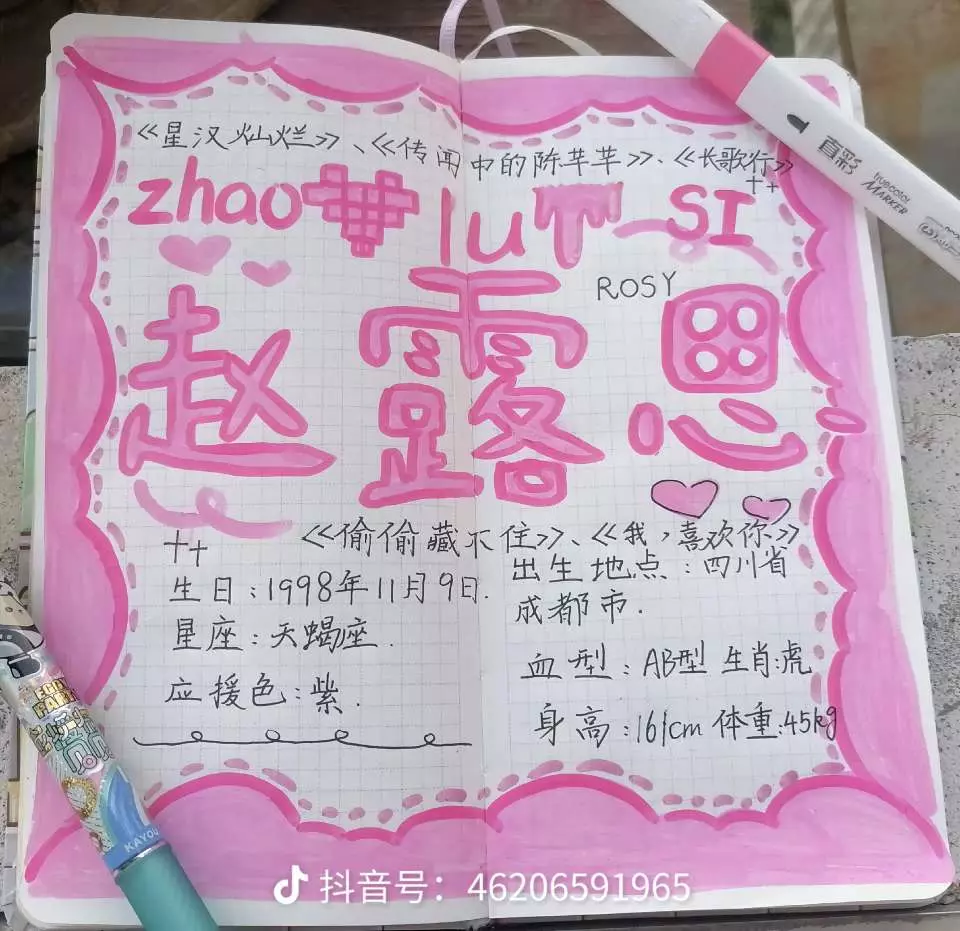 《星汉灿烂》、《传闻中的陈芊芊》、《长歌行》
zhao lu SI
ROSY
赵露思
《偷偷藏不住》、《我,喜欢你》
生日:1998年11月9日.
星座:天蝎座.
应援色:紫.
出生地点:四川省
成都市.
血型:AB型 生肖:虎
身高:161cm 体重:45kg
直彩
truecolor
MARKER
KAYOU
抖音号:46206591965